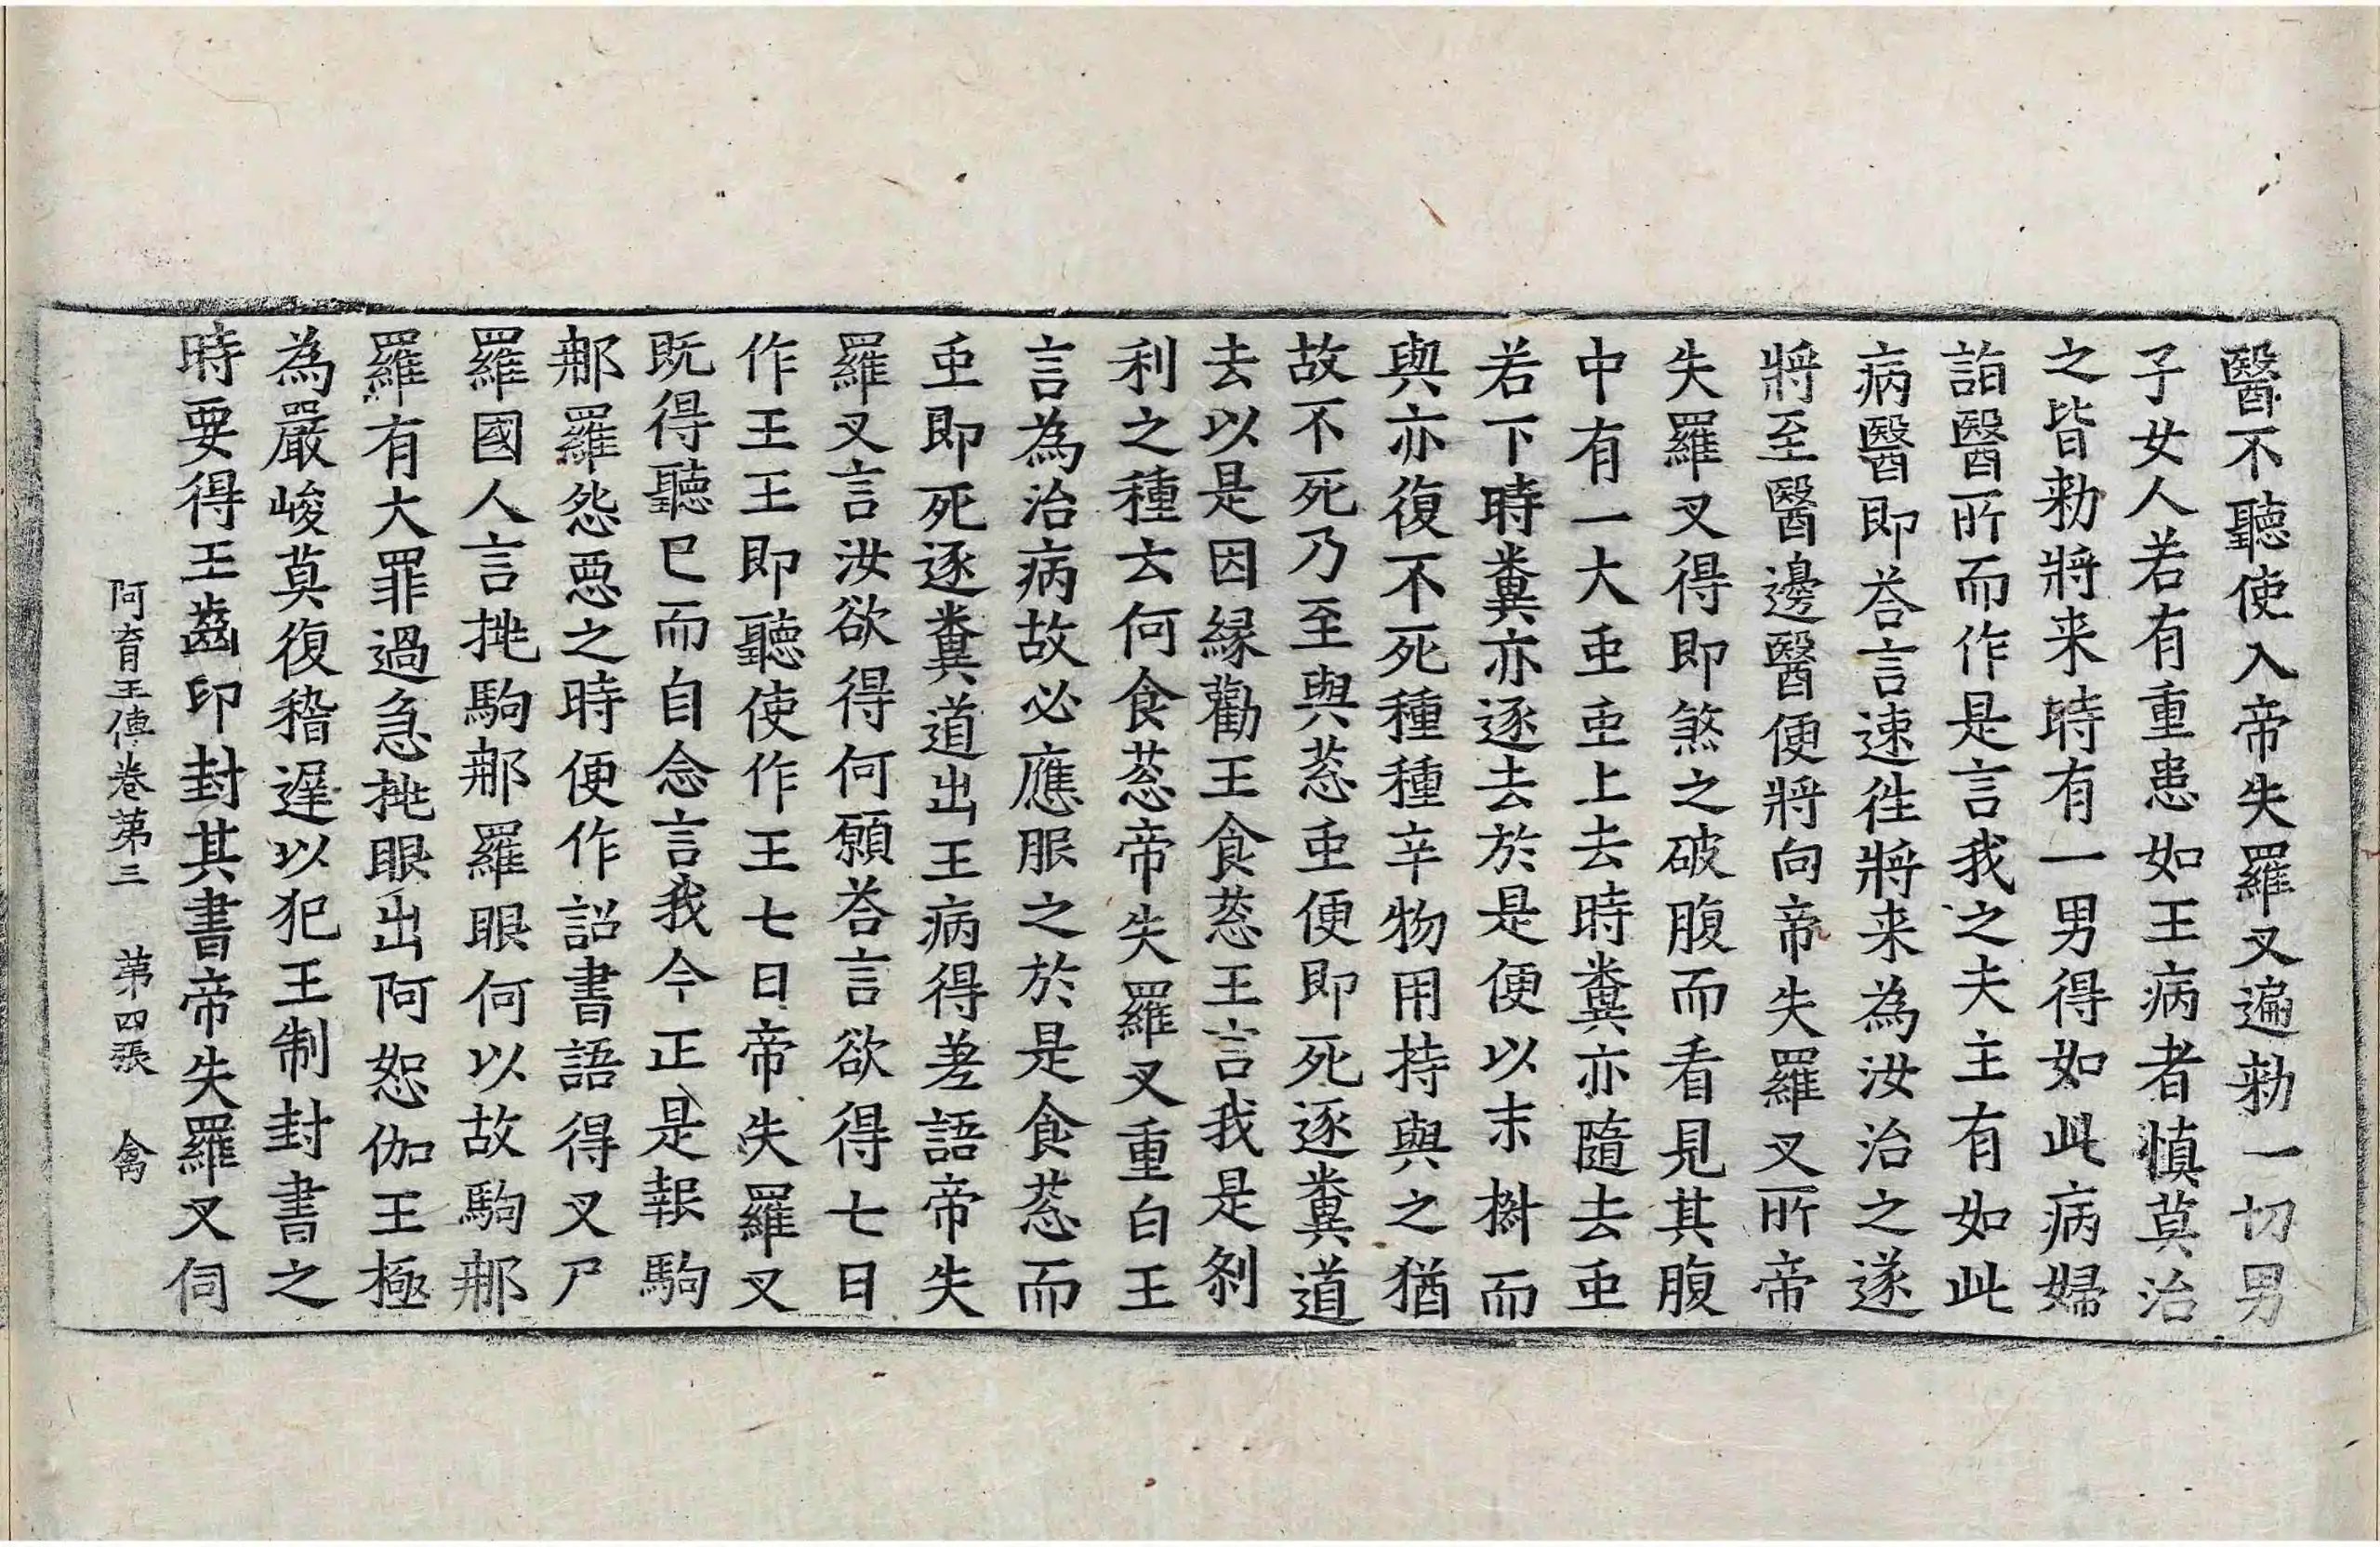 醫不聽使入帝失羅叉遍勑一切男
子女人若有重患如王病者慎莫治
之皆勑將来時有一男得如此病婦
詣醫所而作是言我之夫主有如此
病醫即荅言速徃將来為汝治之遂
將至醫邊醫便將向帝失羅叉所帝
失羅叉得即煞之破腹而看見其腹
中有一大䖝䖝上去時糞亦隨去䖝
若下時糞亦逐去於是便以末𣗳而
與亦復不死種種辛物用持與之猶
故不死乃至與䓗䖝便即死逐糞道
去以是因緣勸王食䓗王言我是剎
利之種云何食䓗帝失羅叉重白王
言為治病故必應服之於是食䓗而
䖝即死逐糞道出王病得差語帝失
羅叉言汝欲得何願荅言欲得七日
作王王即聽使作王七日帝失羅叉
既得聽已而自念言我今正是報駒
那羅怨惡之時便作詔書語得叉尸
羅國人言挑駒那羅眼何以故駒那
羅有大罪過急挑眼出阿恕伽王極
為嚴峻莫復稽遲以犯王制封書之
時要得王齒印封其書帝失羅叉伺
阿育王傳卷第三　第四張　禽